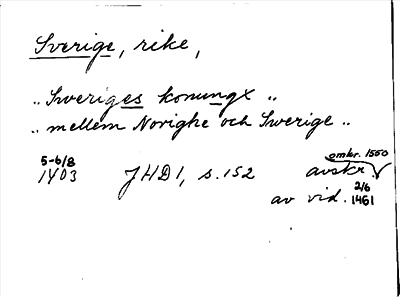 Sverige, rike,
„ Sweriges konungx „
„ mellem Norighe och Swerige „
5-6/8 omkr. 1550
1403 JHD 1, s. 152 avskr.
av vid. 2/6 1461